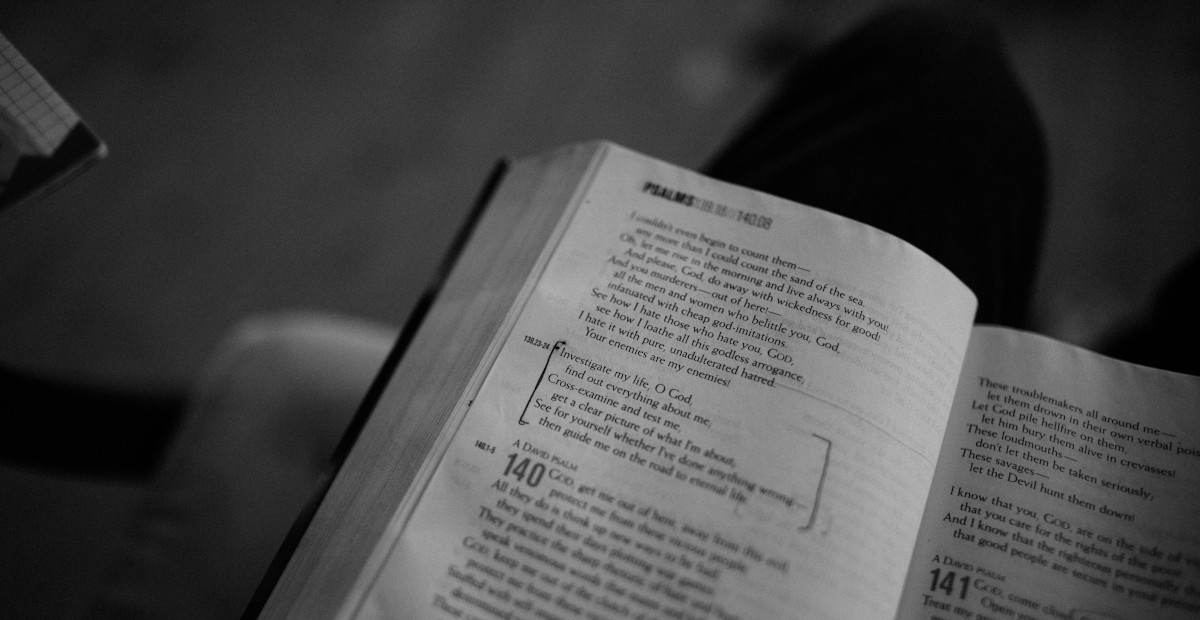 PSALMS 139.18 140.08
I couldn't even begin to count them—
any more than I could count the sand of the sea.
Oh, let me rise in the morning and live always with you!
And please, God, do away with wickedness for good!
And you murderers—out of here!—
all the men and women who belittle you, God,
infatuated with cheap god-imitations.
See how I hate those who hate you, GOD,
see how I loathe all this godless arrogance;
I hate it with pure, unadulterated hatred.
Your enemies are my enemies!
139.23-24
Investigate my life, O God,
find out everything about me;
Cross-examine and test me,
get a clear picture of what I'm about;
See for yourself whether I've done anything wrong—
then guide me on the road to eternal life.
140.1-5
A DAVID PSALM
140 GOD, get me out of here, away from this evil;
protect me from these vicious people.
All they do is think up new ways to be bad;
they spend their days plotting war games.
They practice the sharp rhetoric of hate and
speak venomous words that maim and
GOD, keep me out of the clutch of
protect me from these
Stuffed with self-
determined
These
These troublemakers all around me—
let them drown in their own verbal
Let God pile hellfire on them,
let him bury them alive in crevasses!
These loudmouths—
don't let them be taken seriously;
These savages—
let the Devil hunt them down!
I know that you, GOD, are on the side of
that you care for the rights of the poor
And I know that the righteous personally
that good people are secure in your
A DAVID PSALM
141 GOD, come close.
Open your
Treat my